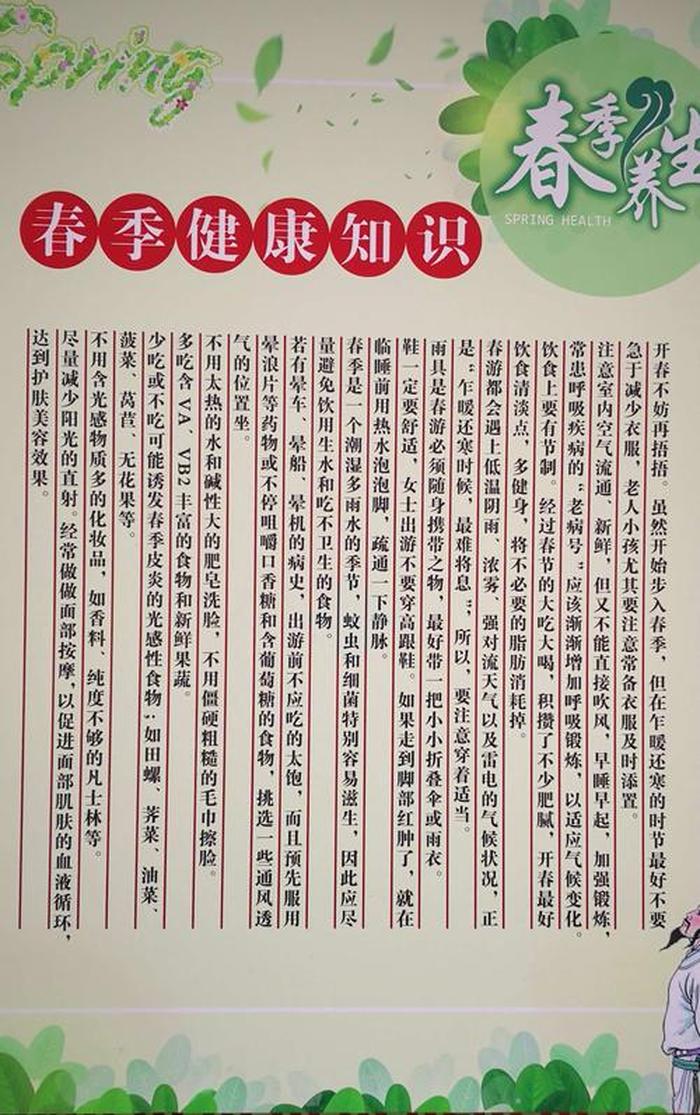 Spring
春季养生
SPRING HEALTH
春季健康知识
开春不妨再捂捂。虽然开始步入春季，但在乍暖还寒的时节最好不要
急于减少衣服，老人小孩尤其要注意常备衣服及时添置。
注意室内空气流通、新鲜，但又不能直接吹风，早睡早起，加强锻炼，
常患呼吸疾病的“老病号”应该渐渐增加呼吸锻炼，以适应气候变化。
饮食上要有节制。经过春节的大吃大喝，积攒了不少肥腻，开春最好
饮食清淡点，多健身，将不必要的脂肪消耗掉。
春游都会遇上低温阴雨、浓雾、强对流天气以及雷电的气候状况，正
是“乍暖还寒时候，最难将息”，所以，要注意穿着适当。
雨具是春游必须随身携带之物，最好带一把小小折叠伞或雨衣。
鞋一定要舒适，女士出游不要穿高跟鞋。如果走到脚部红肿了，就在
临睡前用热水泡泡脚，疏通一下静脉。
春季是一个潮湿多雨水的季节，蚊虫和细菌特别容易滋生，因此应尽
量避免饮用生水和吃不卫生的食物。
若有晕车、晕船、晕机的病史，出游前不应吃的太饱，而且预先服用
晕浪片等药物或不停咀嚼口香糖和含葡萄糖的食物，挑选一些通风透
气的位置坐。
不用太热的水和碱性大的肥皂洗脸，不用僵硬粗糙的毛巾擦脸。
多吃含VA、VB2丰富的食物和新鲜果蔬。
少吃或不吃可能诱发春季皮炎的光感性食物；如田螺、荠菜、油菜、
菠菜、莴苣、无花果等。
不用含光感物质多的化妆品，如香料、纯度不够的凡士林等。
尽量减少阳光的直射。经常做做面部按摩，以促进面部肌肤的血液循环，
达到护肤美容效果。